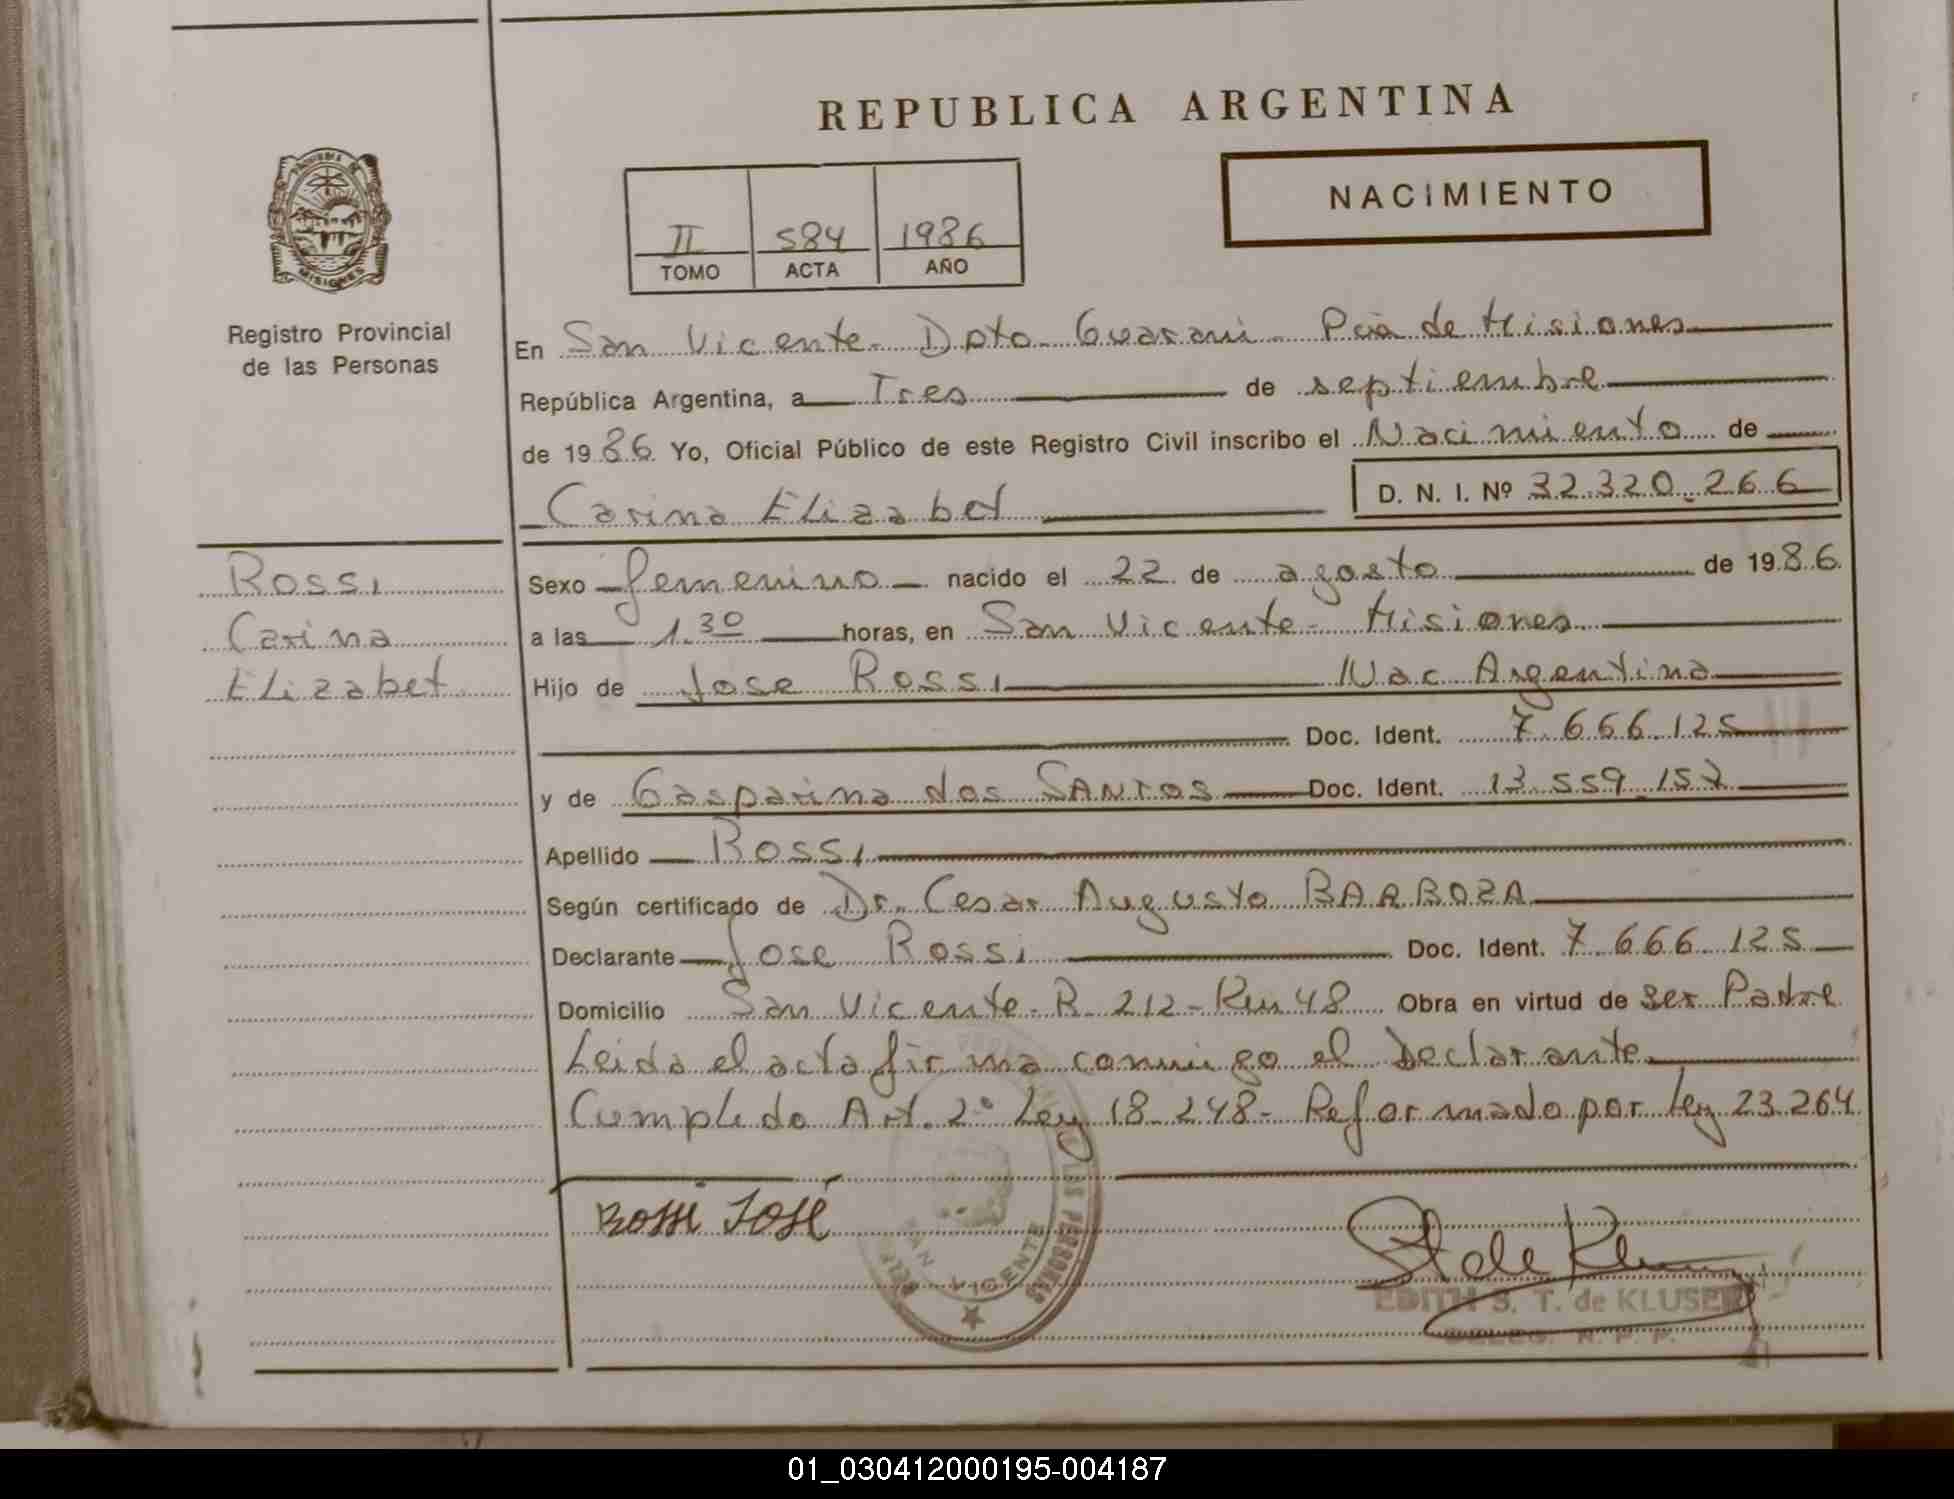 REPUBLICA ARGENTINA
NACIMIENTO
II 584 1986
TOMO ACTA AÑO
MISIONES
Registro Provincial
de las Personas
En San Vicente - Dpto Guarani - Pcia de Misiones
República Argentina, a Tres de septiembre
de 1986 Yo, Oficial Público de este Registro Civil inscribo el Nacimiento de
Carina Elizabet D. N. I. Nº 32.320.266
Rossi
Carina
Elizabet
Sexo femenino nacido el 22 de agosto de 1986
a las 1.30 horas, en San Vicente - Misiones
Hijo de Jose Rossi Nac Argentina
Doc. Ident. 7.666.125
y de Gasparina dos SANTOS Doc. Ident. 13.559.157
Apellido Rossi
Según certificado de Dr. Cesar Augusto BARBOZA
Declarante Jose Rossi Doc. Ident. 7.666.125
Domicilio San Vicente - R. 212 - Km 48 Obra en virtud de ser Padre
Leida el acta firma conmigo el Declarante
Cumplido Art. 2° Ley 18.248 - Reformado por Ley 23.264
Rossi José
SAN VICENTE
LAS PERSONAS
EDITH S. T. de KLUSER
01_030412000195-004187